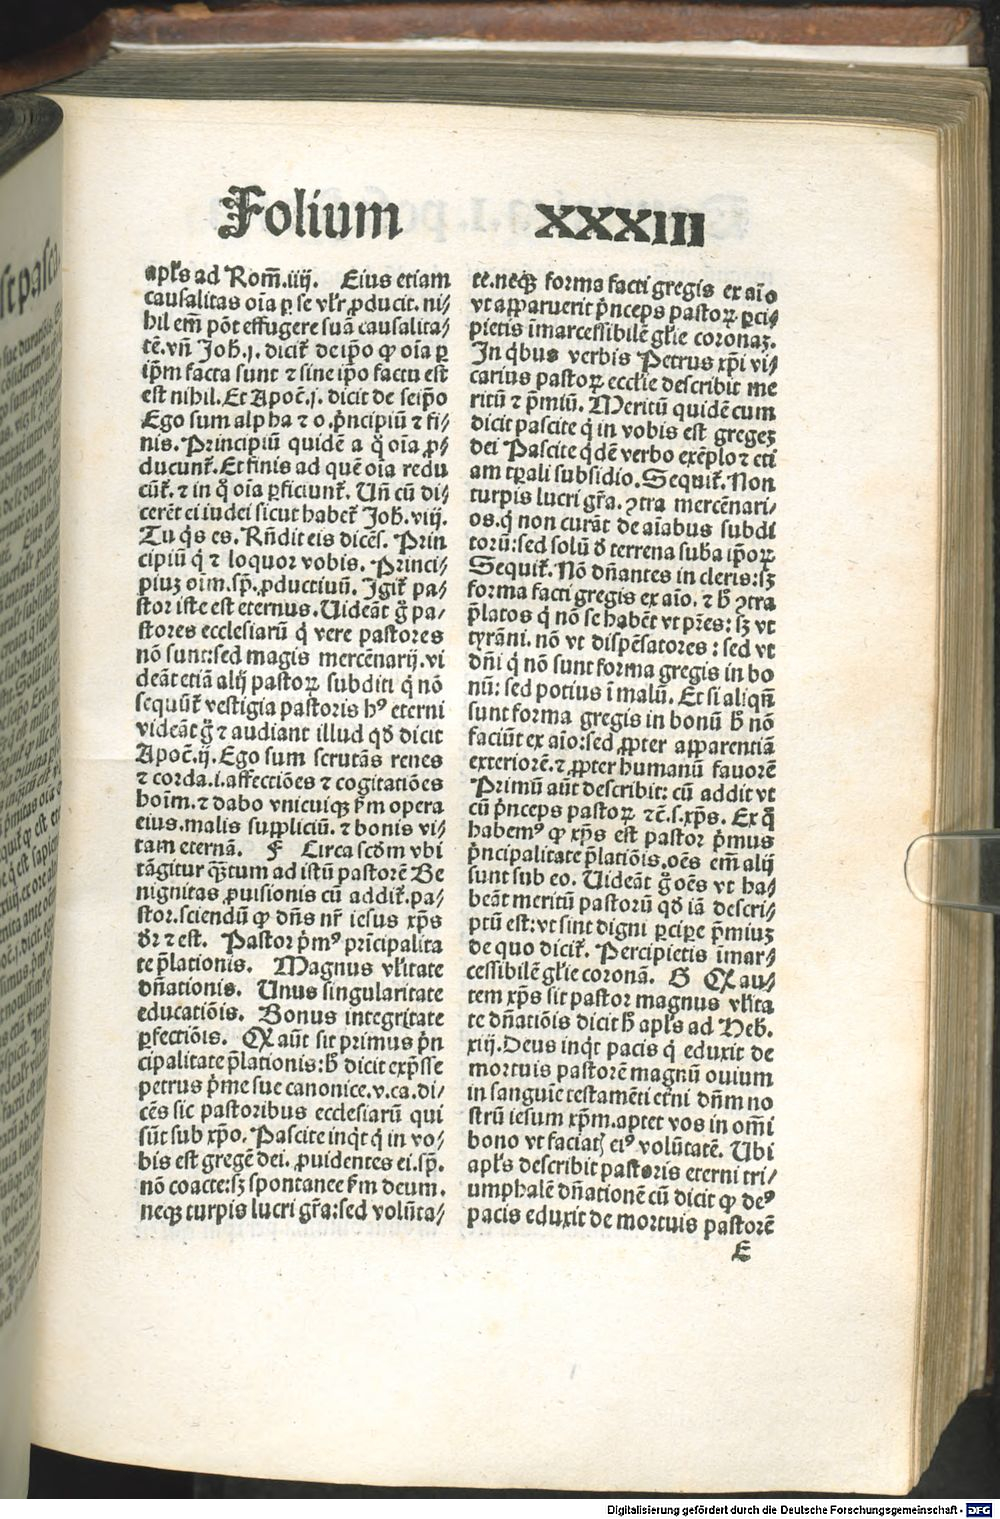 Folium XXXIII
apl's ad Rom̄.iiij. Eius etiam
causalitas oīa ꝑ se vl'r ꝓducit. ni⸗
hil em̄ pōt effugere suā causalita⸗
tē. vn̄ Joh̄.j. dicit᷑ de ip̄o ꝙ oīa ꝑ
ip̄m facta sunt ⁊ sine ip̄o factū est
est nihil. Et Apoc̄.j. dicit de seip̄o
Ego sum alpha ⁊ o. p̍ncipiū ⁊ fi⸗
nis. Principiū quidē a q̊ oīa ꝓ⸗
ducunt᷑. Et finis ad quē oīa redu
cūt᷑. ⁊ in q̊ oīa ꝑficiunt᷑. Un̄ cū di⸗
cerēt ei iudei sicut habet᷑ Joh̄.viij.
Tu q̍s es. Rn̄dit eis dicēs. Prin
cipiū q̍ ⁊ loquor vobis. Princi⸗
piuꝫ oīm. sp̄. ꝓductiuū. Igit᷑ pa⸗
stor iste est eternus. Uideāt g̊ pa⸗
stores ecclesiarū q̍ vere pastores
nō sunt: sed magis mercēnarij. vi
deāt etiā alij pastoꝝ subditi q̍ nō
sequūt᷑ vestigia pastoris hꝰ eterni
videāt g̊ ⁊ audiant illud qd̄ dicit
Apoc̄.ij. Ego sum scrutās renes
⁊ corda.i.affectiōes ⁊ cogitatiōes
hoīm. ⁊ dabo vnicuiqꝫ ẜm opera
eius. malis suppliciū. ⁊ bonis vi⸗
tam eternā. F Circa scd̄m vbi
tāgitur q̄ꝫtum ad istū pastorē Be
nignitas ꝓuisionis cū addit᷑. pa⸗
stor. sciendū ꝙ dn̄s nr̄ iesus xp̄s
dr̄ ⁊ est. Pastor p̍mꝰ prīcipalita
te p̄lationis. Magnus vl'itate
dn̄ationis. Unus singularitate
educatiōis. Bonus integritate
ꝑfectiōis. Qꝙ aūt sit primus p̍n
cipalitate p̄lationis: h̄ dicit exp̄sse
petrus p̍me sue canonice.v.ca.di⸗
cēs sic pastoribus ecclesiarū qui
sūt sub xp̄o. Pascite inq̍t q̍ in vo⸗
bis est gregē dei. ꝓuidentes ei. sp̄.
nō coacte: sꝫ spontanee ẜm deum.
neqꝫ turpis lucri gr̄a: sed volūta⸗
te. neqꝫ forma facti gregis ex aīo
vt apparuerit p̍nceps pastoꝝ ꝑci⸗
pietis īmarcessibilē gl'ie coronaꝫ.
In q̍bus verbis Petrus xp̄i vi⸗
carius pastoꝝ ecclie describit me
ritū ⁊ p̄miū. Meritū quidē cum
dicit pascite q̍ in vobis est gregeꝫ
dei Pascite q̍dē verbo exēplo ⁊ eti
am tp̄ali subsidio. Sequit᷑. Non
turpis lucri gr̄a. ꝯtra mercēnari⸗
os. q̍ non curāt de aīabus subdi
torū: sed solū d̄ terrena sub̄a ip̄oꝝ
Sequit᷑. Nō dn̄antes in cleris: sꝫ
forma facti gregis ex aīo. ⁊ h̄ ꝯtra
p̄latos q̍ nō se habēt vt pr̄es: sꝫ vt
tyrāni. nō vt dispēsatores: sed vt
dn̄i q̍ nō sunt forma gregis in bo
nū: sed potius ī malū. Et si aliqn̄
sunt forma gregis in bonū h̄ nō
faciūt ex aīo: sed ꝓpter apparentiā
exteriorē. ⁊ ꝓpter humanū fauorē
Primū aūt describit: cū addit vt
cū p̍nceps pastoꝝ ⁊c̄.s.xp̄s. Ex q̊
habemꝰ ꝙ xp̄s est pastor p̍mus
p̍ncipalitate p̄latiōis. oēs em̄ alij
sunt sub eo. Uideāt g̊ oēs vt ha⸗
beāt meritū pastorū qd̄ iā descri⸗
ptū est: vt sint digni ꝑcipe p̄miuꝫ
de quo dicit᷑. Percipietis īmar⸗
cessibilē gl'ie coronā. G Qꝙ au⸗
tem xp̄s sit pastor magnus vl'ita
te dn̄atiōis dicit h̄ apl's ad Heb̄.
xiij. Deus inq̍t pacis q̍ eduxit de
mortuis pastorē magnū ouium
in sanguīe testamēti et᷑ni dn̄m no
strū iesum xp̄m. aptet vos in om̄i
bono vt faciatꝭ eiꝰ volūtatē. Ubi
apl's describit pastoris eterni tri⸗
umphalē dn̄ationē cū dicit ꝙ deꝰ
pacis eduxit de mortuis pastorē
E
Digitalisierung gefördert durch die Deutsche Forschungsgemeinschaft - DFG